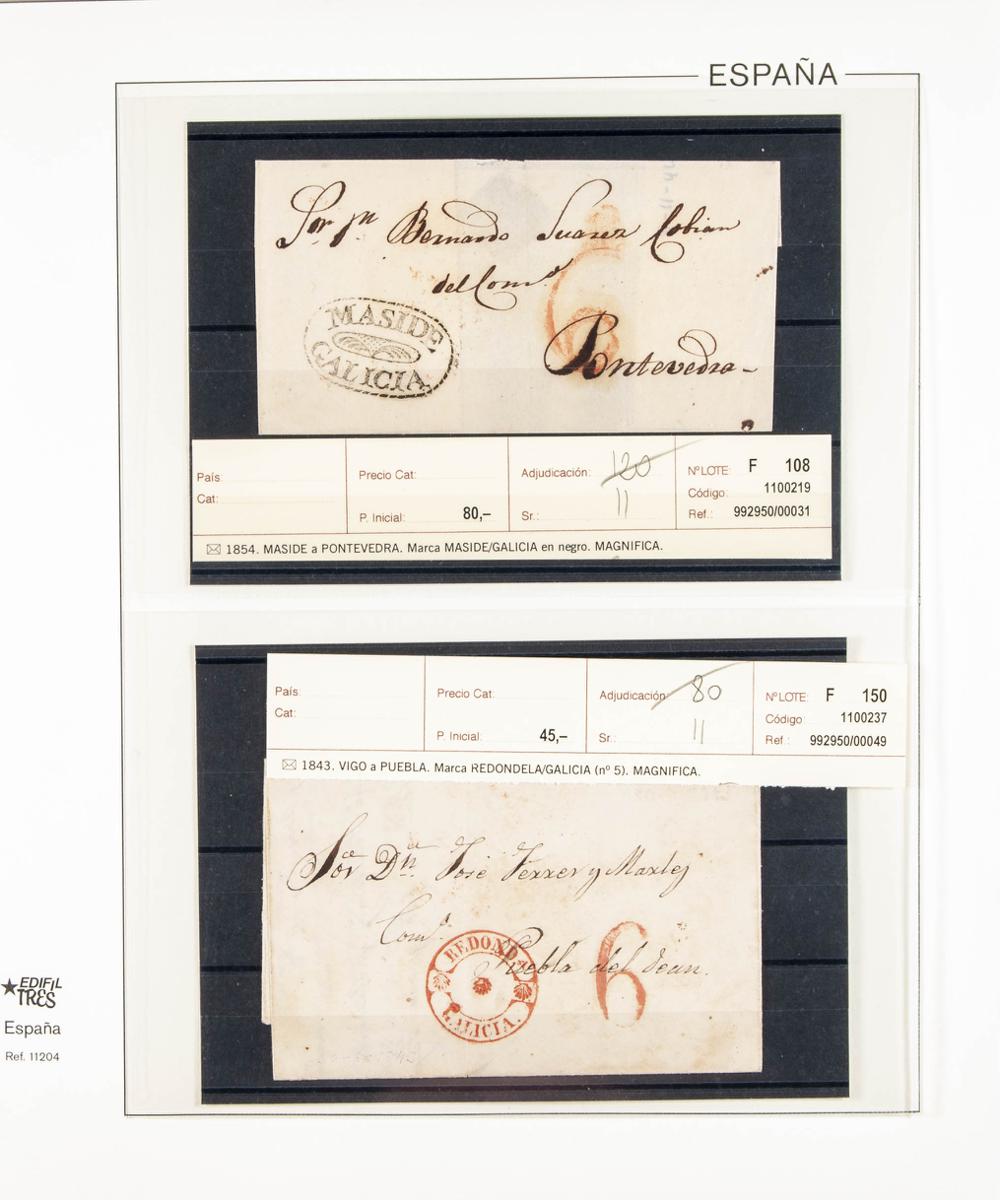 ESPAÑA
Sor Dn Bernardo Suarez Cobian
del Como
6
Pontevedra-
MASIDE
GALICIA
País:
Cat:
Precio Cat:
P. Inicial: 80,–
Adjudicación: 120
Sr.: 11
NºLOTE: F 108
Código: 1100219
Ref.: 992950/00031
1854. MASIDE a PONTEVEDRA. Marca MASIDE/GALICIA en negro. MAGNIFICA.
País:
Cat:
Precio Cat:
P. Inicial: 45,–
Adjudicación: 80
Sr.: 11
NºLOTE: F 150
Código: 1100237
Ref.: 992950/00049
1843. VIGO a PUEBLA. Marca REDONDELA/GALICIA (nº 5). MAGNIFICA.
Sor Dn José Ferrer y
Puebla del Dean.
REDONDA
GALICIA.
6
EDIFIL
TRES
España
Ref. 11204